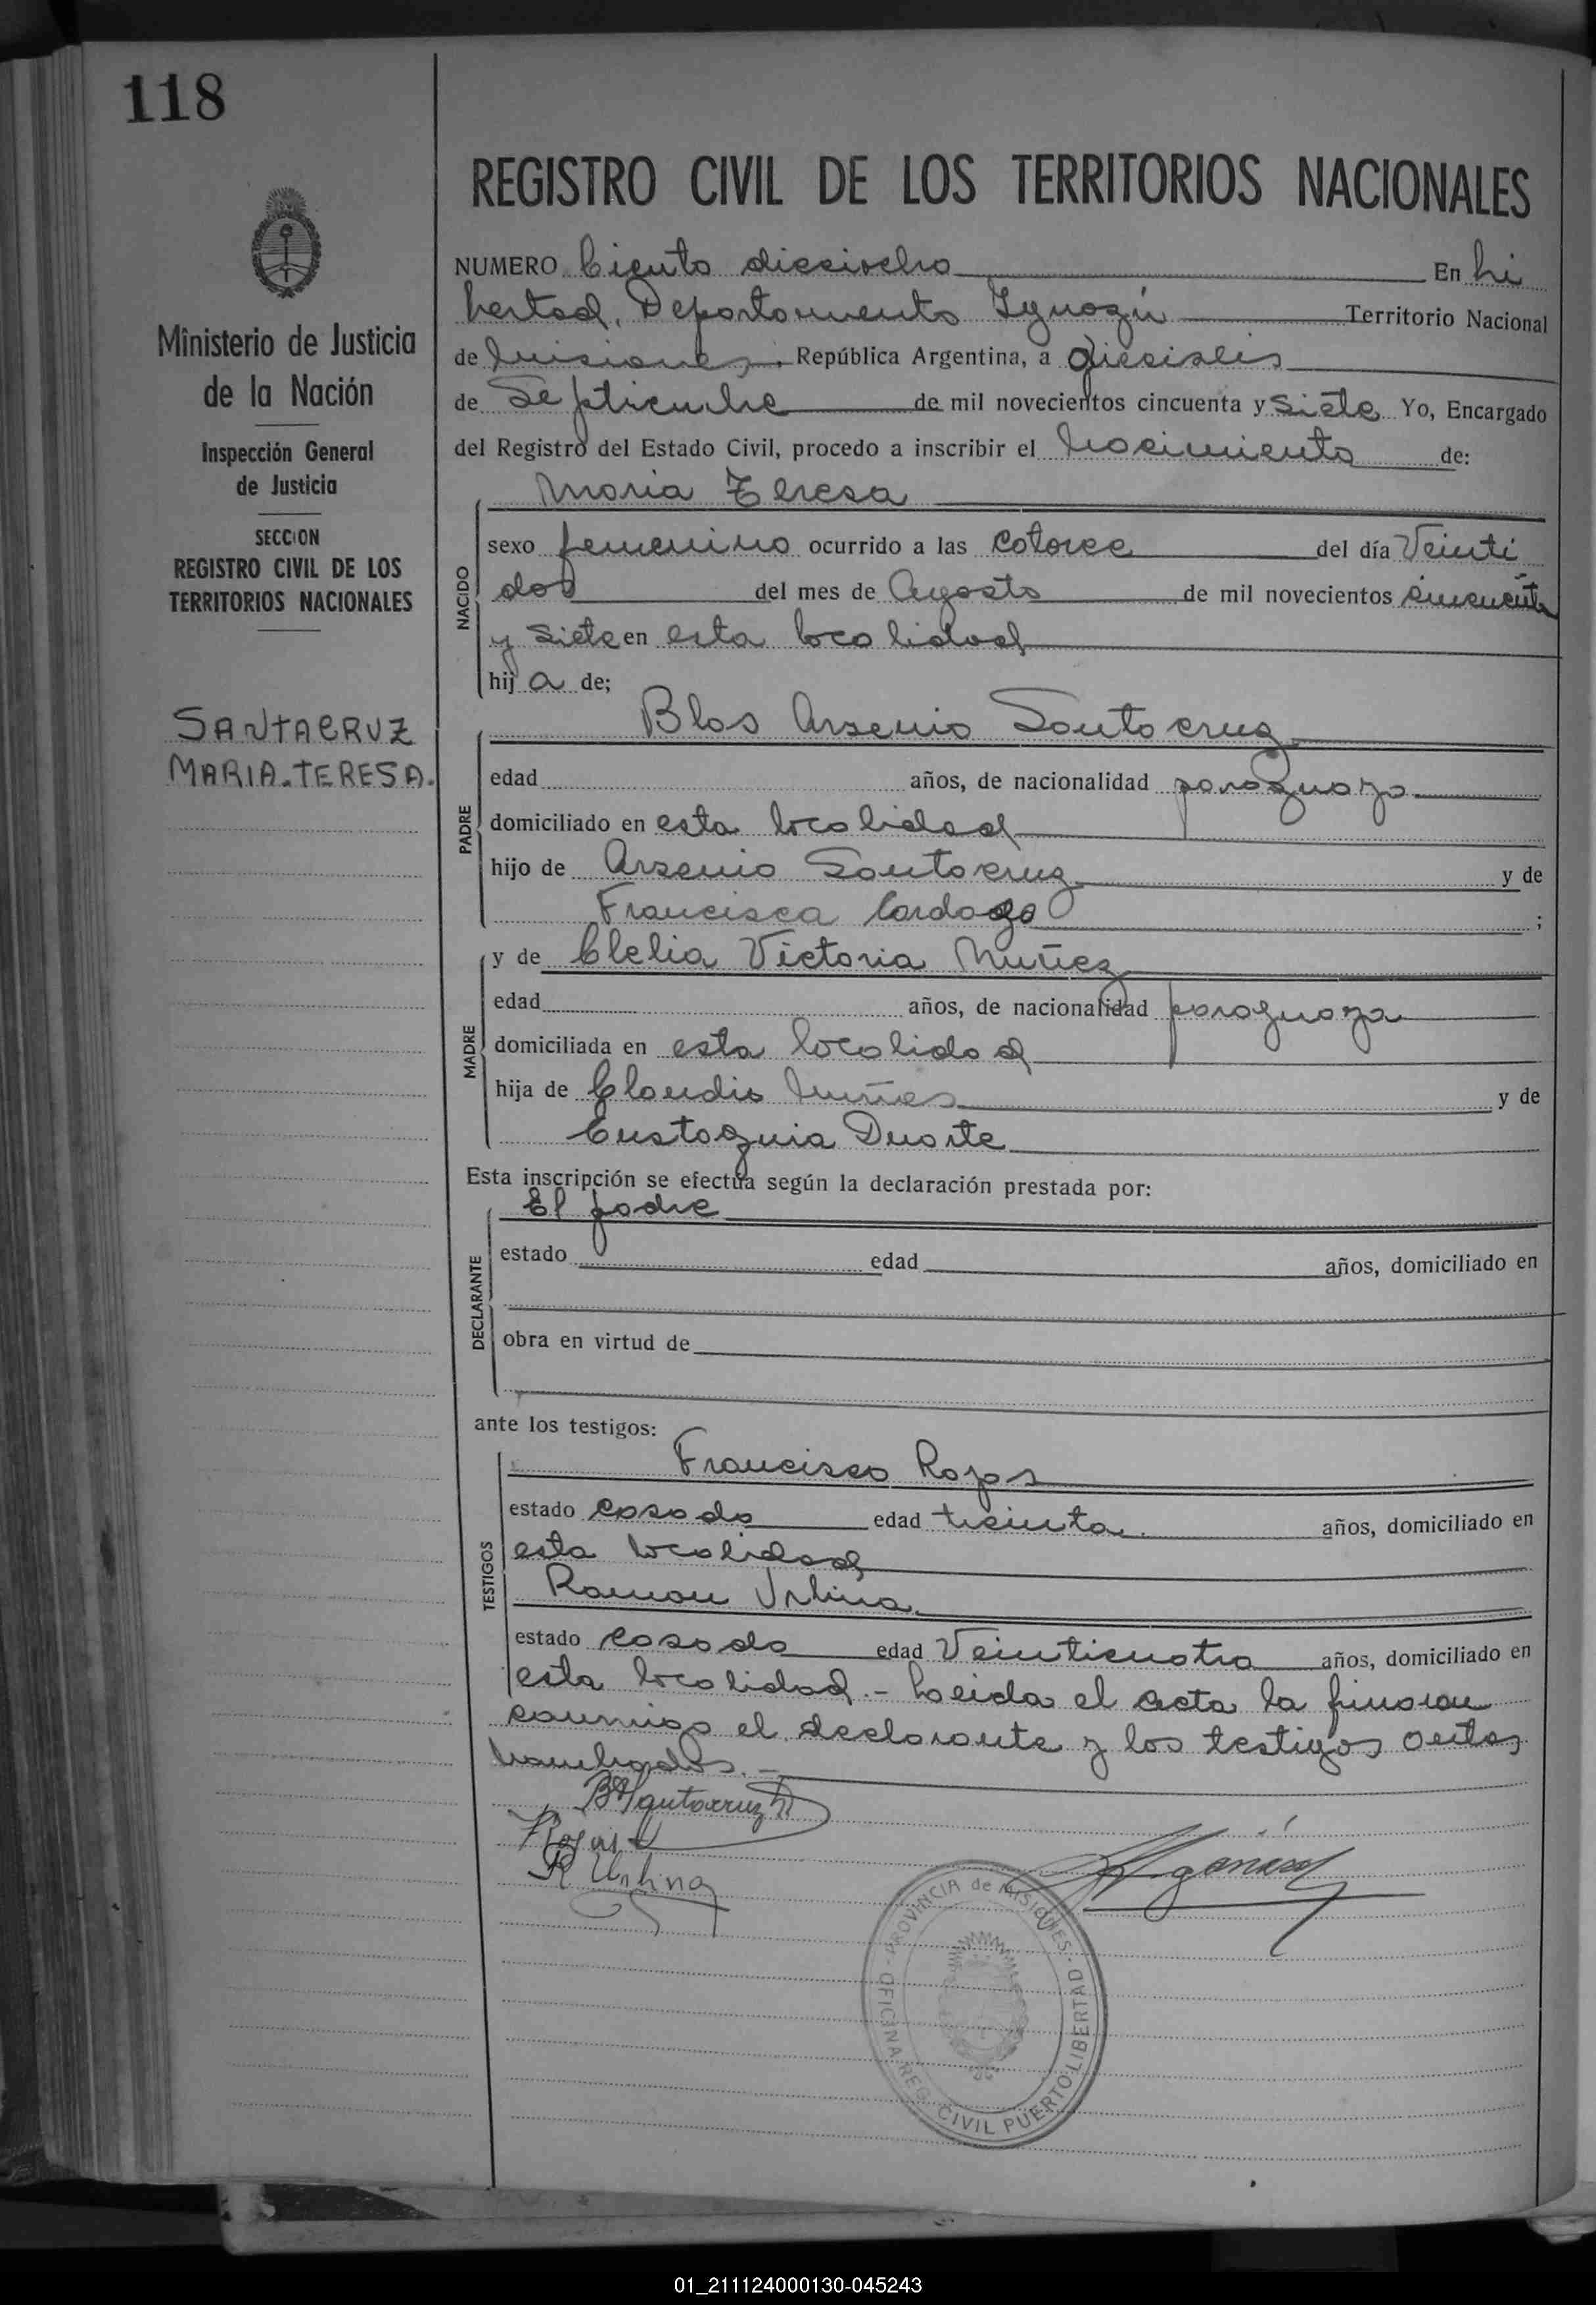 118
Ministerio de Justicia
de la Nación
Inspección General
de Justicia
SECCION
REGISTRO CIVIL DE LOS
TERRITORIOS NACIONALES
SANTACRUZ
MARIA.TERESA.
REGISTRO CIVIL DE LOS TERRITORIOS NACIONALES
NUMERO Ciento dieciocho En Li
bertad, Departamento Iguazú Territorio Nacional
de Misiones, República Argentina, a dieciseis
de Septiembre de mil novecientos cincuenta y siete Yo, Encargado
del Registro del Estado Civil, procedo a inscribir el Nacimiento de:
NACIDO
Maria Teresa
sexo femenino ocurrido a las catorce del día Veinti
dos del mes de Agosto de mil novecientos cincuenta
y siete en esta localidad
hij a de;
PADRE
Blas Arsenio Santacruz
edad años, de nacionalidad paraguayo
domiciliado en esta localidad
hijo de Arsenio Santacruz y de
Francisca Cardozo ;
MADRE
y de Clelia Victoria Muñez
edad años, de nacionalidad paraguaya
domiciliada en esta localidad
hija de Claudio Muñes y de
Eustaquia Duarte
Esta inscripción se efectúa según la declaración prestada por:
DECLARANTE
El padre
estado edad años, domiciliado en
obra en virtud de
ante los testigos:
TESTIGOS
Francisco Rojas
estado casado edad treinta años, domiciliado en
esta localidad
Ramon Urbina
estado casado edad Veinticuatro años, domiciliado en
esta localidad.- Leida el acta la firman
conmigo el declarante y los testigos antes
nombrados.-
BASantacruz
Rojas
R Urbina
OFICINA REG. CIVIL PUERTO LIBERTAD - PROVINCIA de MISIONES -
01_211124000130-045243